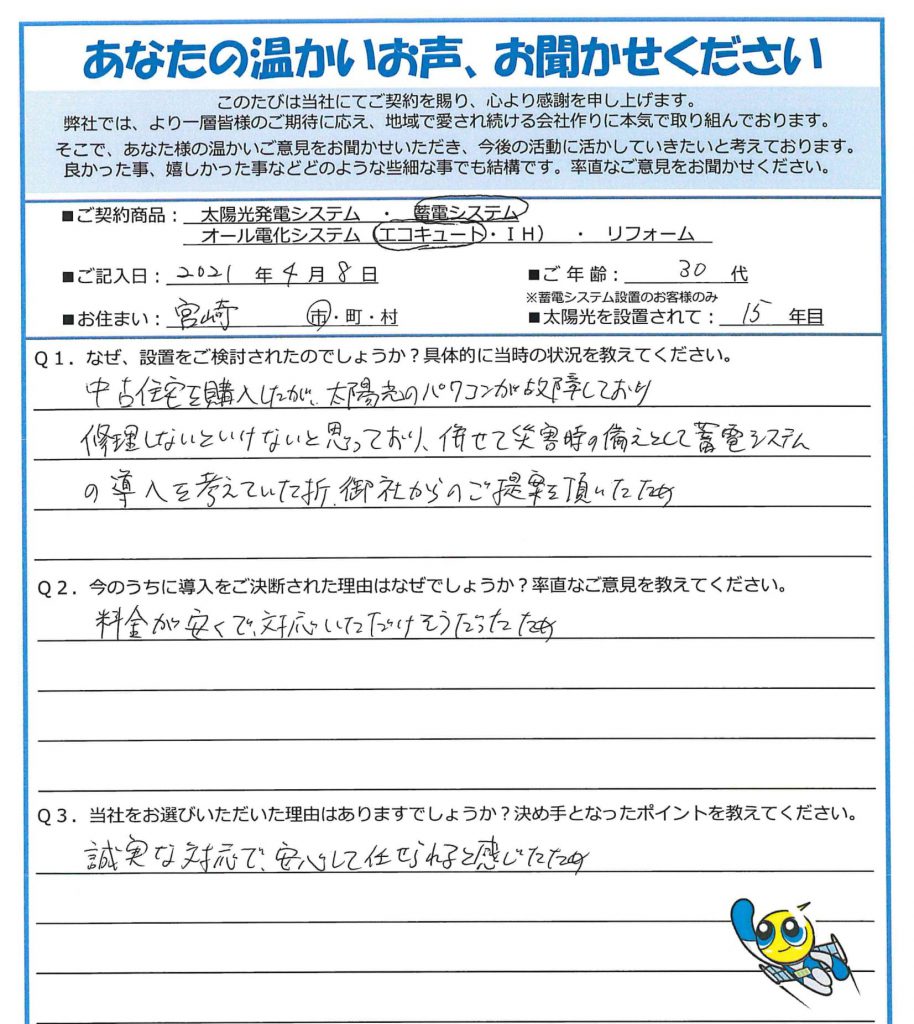 あなたの温かいお声、お聞かせください
このたびは当社にてご契約を賜り、心より感謝を申し上げます。
弊社では、より一層皆様のご期待に応え、地域で愛され続ける会社作りに本気で取り組んでおります。
そこで、あなた様の温かいご意見をお聞かせいただき、今後の活動に活かしていきたいと考えております。
良かった事、嬉しかった事などどのような些細な事でも結構です。率直なご意見をお聞かせください。
■ご契約商品： 太陽光発電システム ・ 蓄電システム
オール電化システム（エコキュート・ＩＨ） ・ リフォーム
■ご記入日： 2021 年 4 月 8 日 ■ご年齢： 30 代
※蓄電システム設置のお客様のみ
■お住まい： 宮崎 市・町・村 ■太陽光を設置されて： 15 年目
Ｑ１．なぜ、設置をご検討されたのでしょうか？具体的に当時の状況を教えてください。
中古住宅を購入したが、太陽光のパワコンが故障しており
修理しないといけないと思っており、併せて災害時の備えとして蓄電システム
の導入を考えていた折、御社からのご提案を頂いたため
Ｑ２．今のうちに導入をご決断された理由はなぜでしょうか？率直なご意見を教えてください。
料金が安くで、対応いただけそうだったため
Ｑ３．当社をお選びいただいた理由はありますでしょうか？決め手となったポイントを教えてください。
誠実な対応で、安心して任せられると感じたため